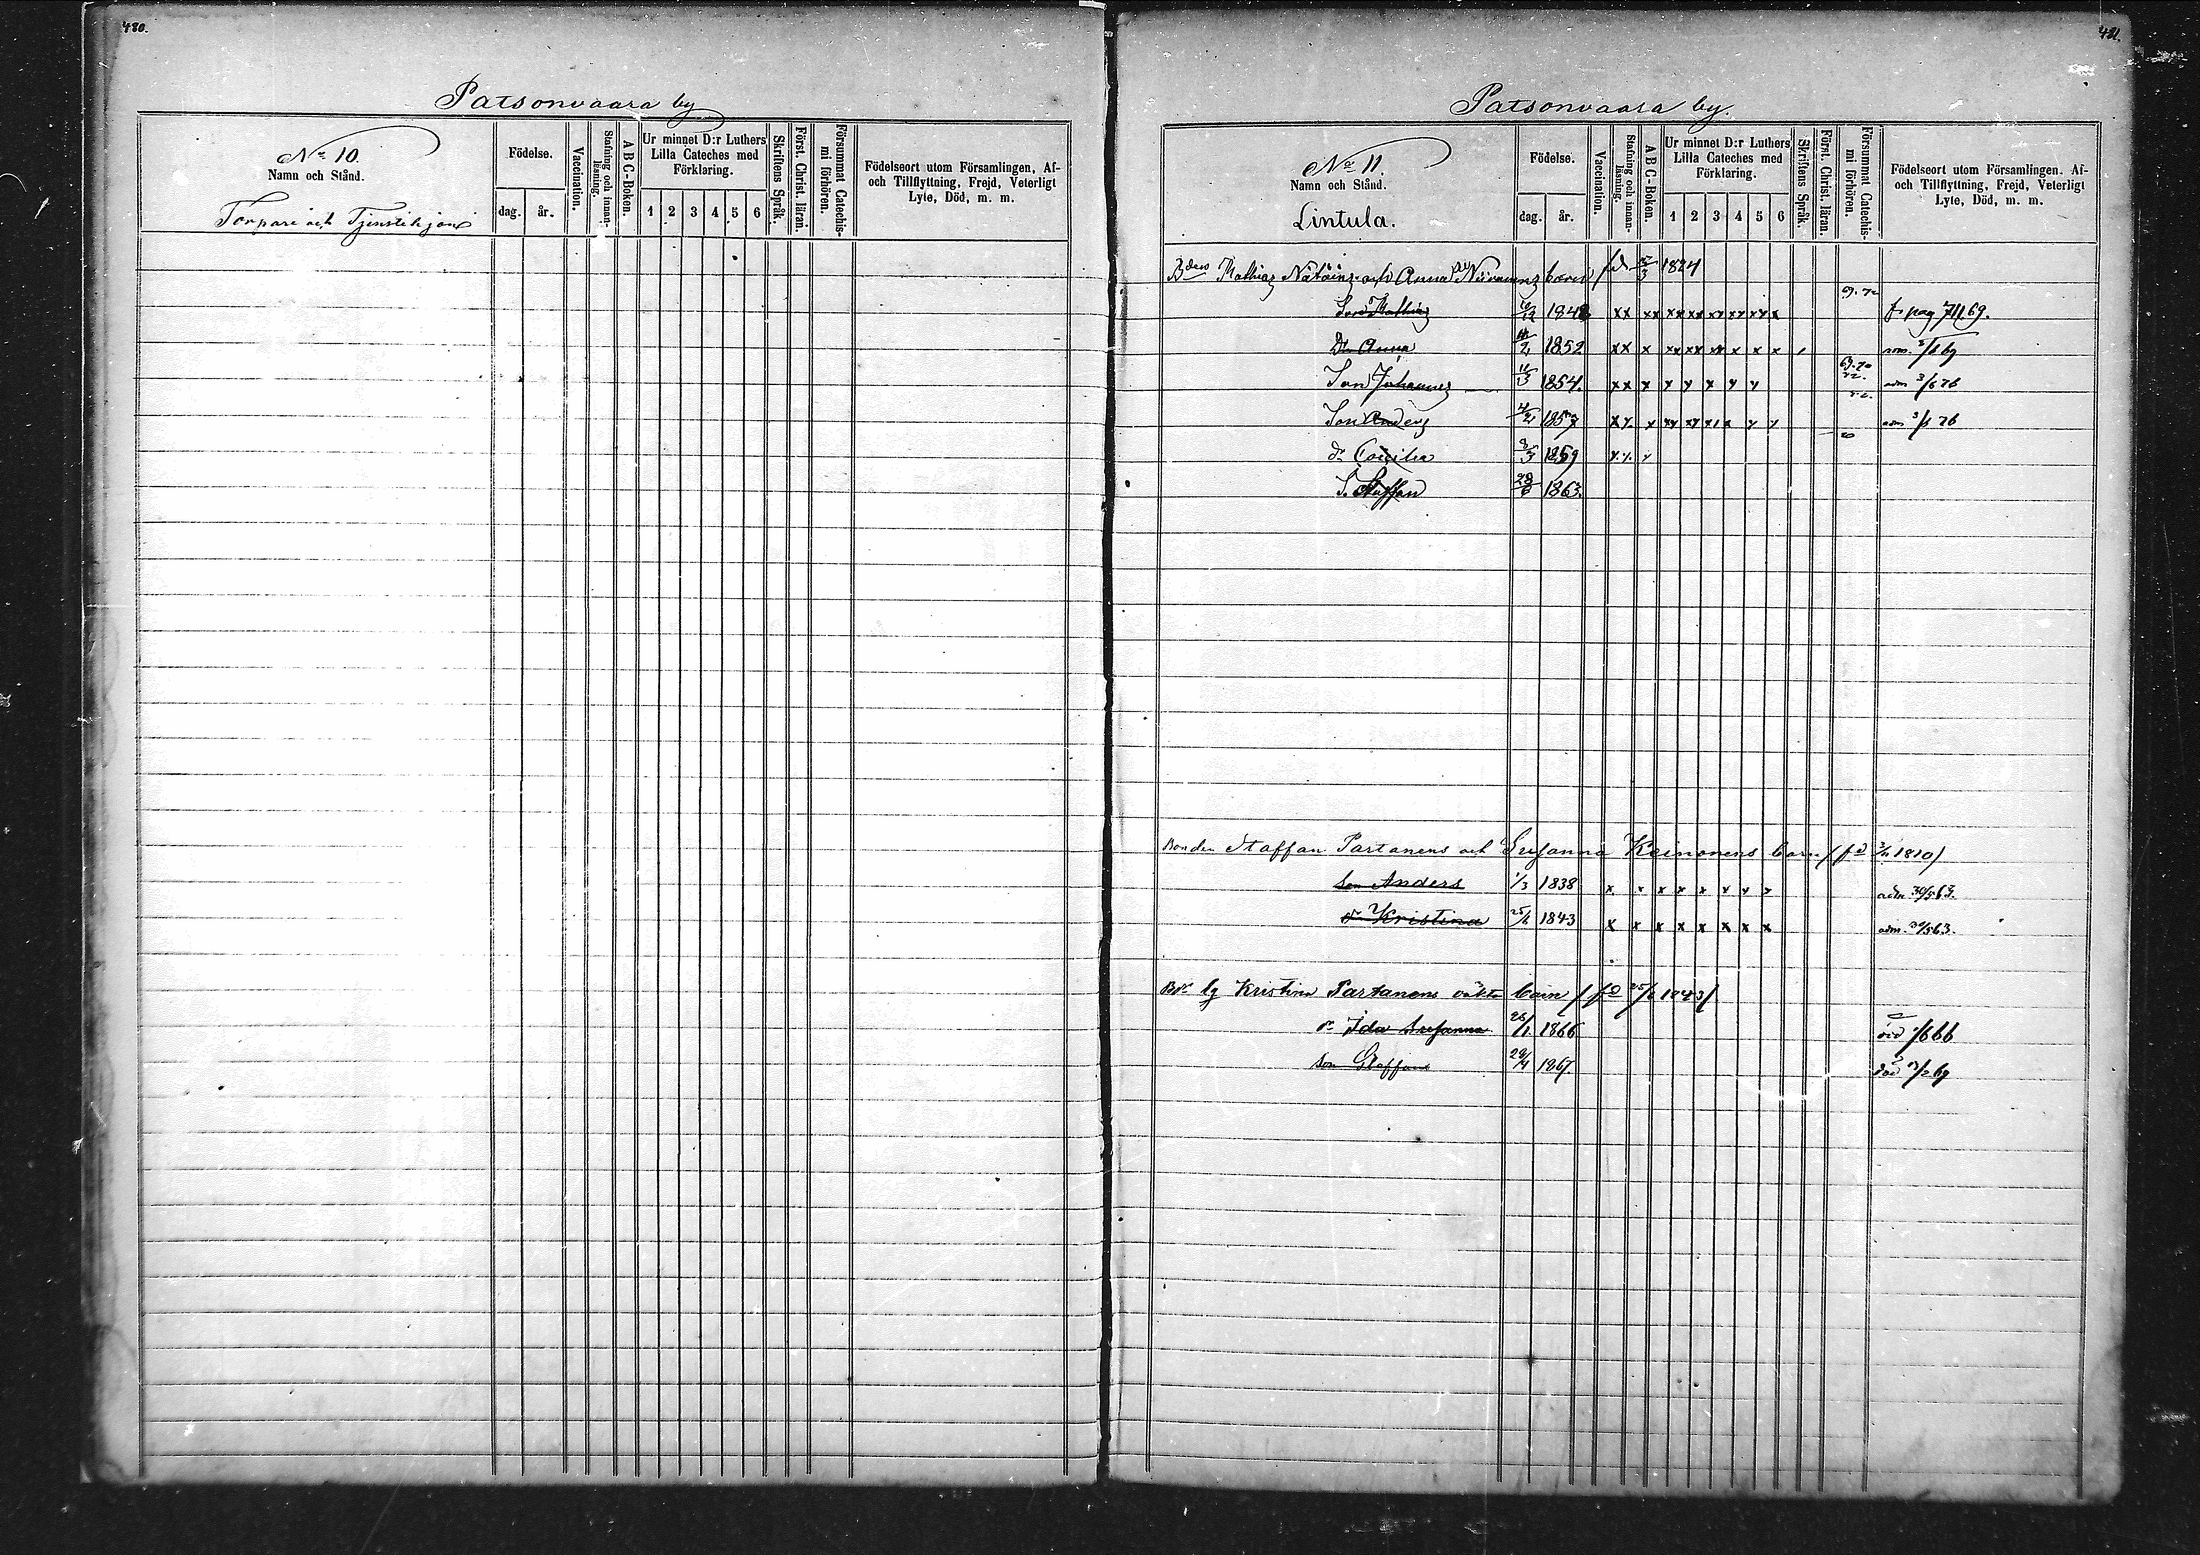 480.
Patsonvaara by
No 10.
Namn och Stånd.
Torpare och Tjenstehjon
Födelse.
dag. år.
Vaccination.
Stafning och innanläsning.
A B C-Boken.
Ur minnet D:r Luthers Lilla Cateches med Förklaring.
1 2 3 4 5 6
Skriftens Språk.
Först. Christ. läran.
Försummat Catechismi förhören.
Födelseort utom Församlingen, Af- och Tillflyttning, Frejd, Veterligt Lyte, Död, m. m.
481.
Patsonvaara by.
No 11.
Namn och Stånd.
Lintula.
Födelse.
dag. år.
Vaccination.
Stafning och innanläsning.
A B C-Boken.
Ur minnet D:r Luthers Lilla Cateches med Förklaring.
1 2 3 4 5 6
Skriftens Språk.
Först. Christ. läran.
Försummat Catechismi förhören.
Födelseort utom Församlingen. Af- och Tillflyttning, Frejd, Veterligt Lyte, Död, m. m.
Bden Mathias och Anna barn fd 1824
Son Mathias 184 xx xx xx xx xx xx xx x 69. 72 fr pag 711 69.
Dr Anna 1852 xx x xx xx xx x x x
Son Johannes 1854. xx x x x x x x adm 3/6 76
Son Anders 1857 xx x xx xx x x x x x adm 76
dr Cecilia 1859 x x x
S. Staffan 1863.
Bonden Staffan Partanens och Susanna Keinonens barn (fd 1810)
Son Anders 1/3 1838 x x x x x x x x adm. 30/5 63.
dr Kristina 25/6 1843 x x x x x x x x adm. 30/5 63.
Kristina Partanens oäkta barn (fd 25/6 1843)
dr Ida Susanna 1866 död 66
son Staffan 29/4 1867. död